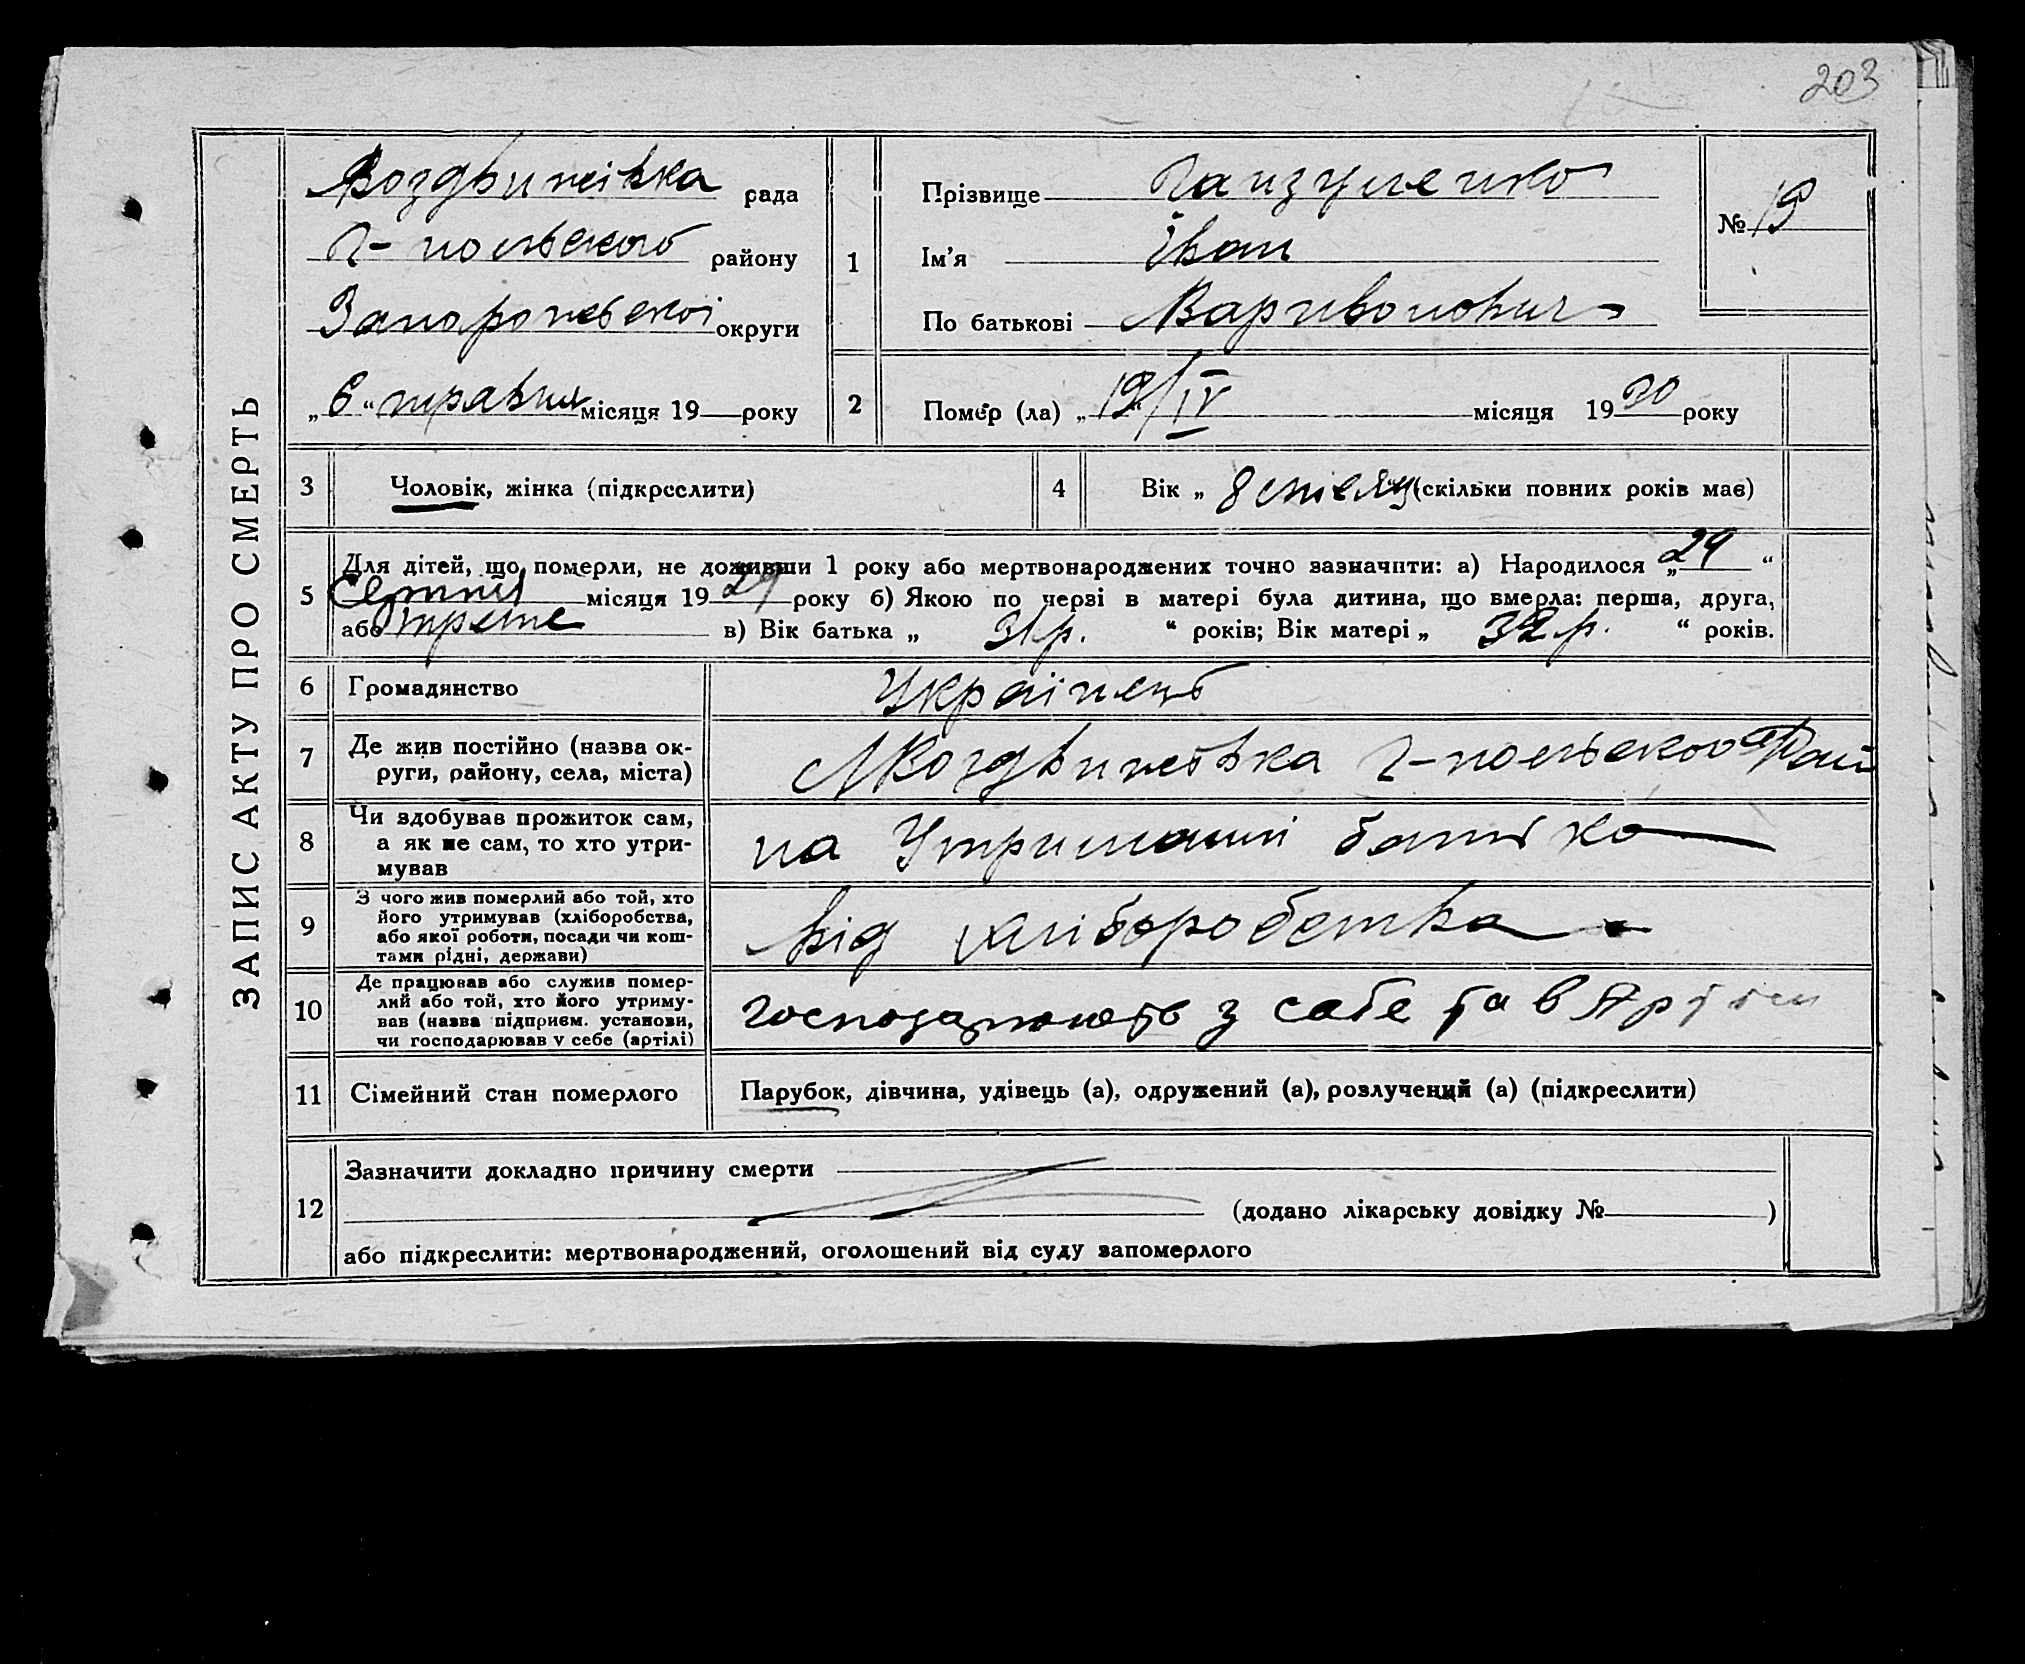 203
ЗАПИС АКТУ ПРО СМЕРТЬ
Воздвижівка рада
Г-польського району
Запорожської округи
„6“ травня місяця 19 року
1
Прізвище
Ім'я Іван
По батькові Варивонович
№ 19
2 Помер (ла) „19/IV місяця 1930 року
3 Чоловік, жінка (підкреслити)
4 Вік „ 8 місяц (скільки повних років має)
5 Для дітей, що померли, не доживши 1 року або мертвонароджених точно зазначити: а) Народилося „29“
місяця 1929 року б) Якою по черзі в матері була дитина, що вмерла: перша, друга,
або трете в) Вік батька „ 31 р. “ років; Вік матері „ 32 р. “ років.
6 Громадянство Українець
7 Де жив постійно (назва ок-
руги, району, села, міста)
Воздвижівка Г-польського Рай
8 Чи здобував прожиток сам,
а як не сам, то хто утри-
мував
на Утриманні батька
9 З чого жив померлий або той, хто
його утримував (хліборобства,
або якої роботи, посади чи кош-
тами рідні, держави)
від хліборобства
10 Де працював або служив помер-
лий або той, хто його утриму-
вав (назва підприєм. установи,
чи господарював у себе (артілі)
господарюють з себе та в Артіли
11 Сімейний стан померлого Парубок, дівчина, удівець (а), одружений (а), розлучений (а) (підкреслити)
12 Зазначити докладно причину смерти
(додано лікарську довідку № )
або підкреслити: мертвонароджений, оголошений від суду запомерлого